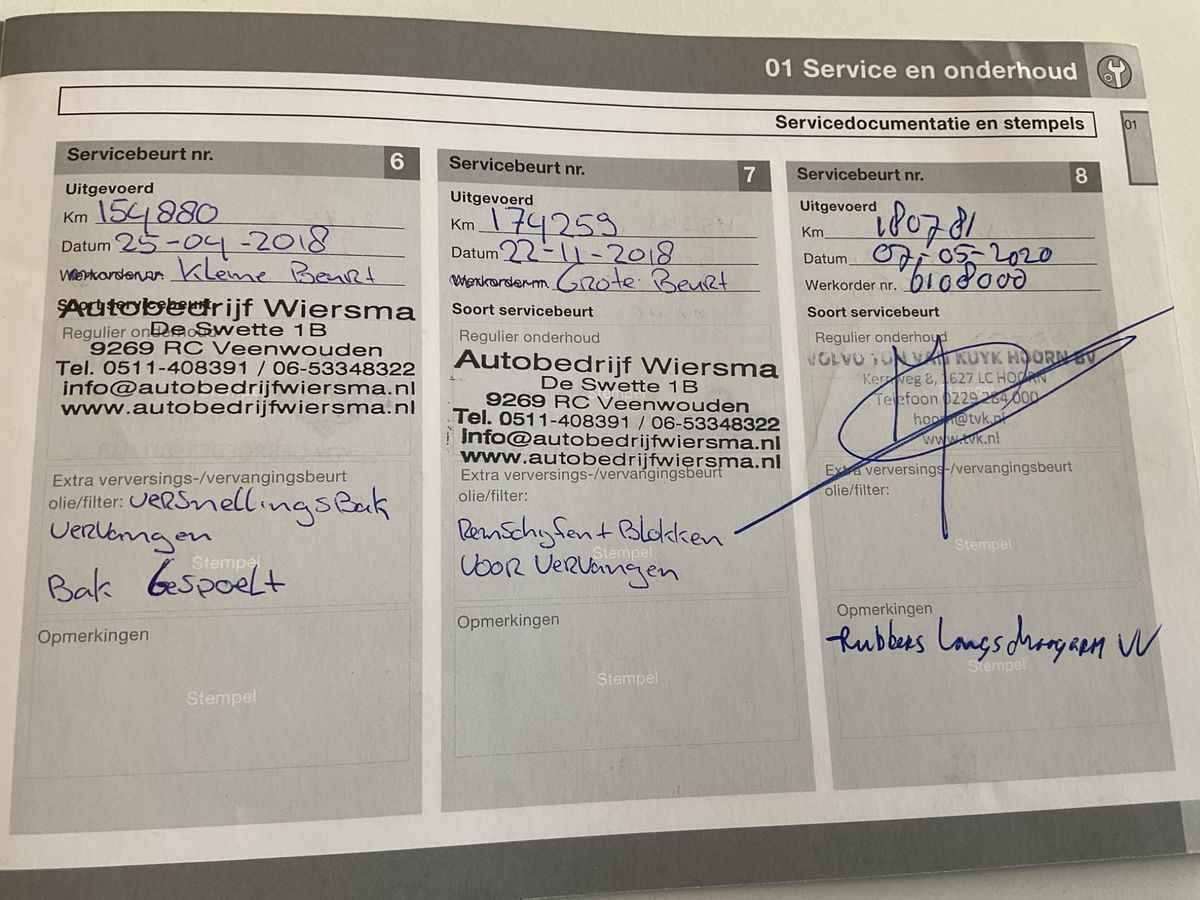 01 Service en onderhoud
Servicedocumentatie en stempels
01
Servicebeurt nr. 6
Uitgevoerd
Km 154880
Datum 25-04-2018
Werkorder nr. Kleine Beurt
Soort servicebeurt
Autobedrijf Wiersma
Regulier onderhoud
De Swette 1B
9269 RC Veenwouden
Tel. 0511-408391 / 06-53348322
info@autobedrijfwiersma.nl
www.autobedrijfwiersma.nl
Extra verversings-/vervangingsbeurt
olie/filter: versnellingsBak
vervangen
Stempel
Bak Gespoelt
Opmerkingen
Stempel
Servicebeurt nr. 7
Uitgevoerd
Km 174259
Datum 22-11-2018
Werkorder nr. Grote Beurt
Soort servicebeurt
Regulier onderhoud
Autobedrijf Wiersma
De Swette 1B
9269 RC Veenwouden
Tel. 0511-408391 / 06-53348322
info@autobedrijfwiersma.nl
www.autobedrijfwiersma.nl
Extra verversings-/vervangingsbeurt
olie/filter:
Remschyfen + Blokken
Stempel
voor vervangen
Opmerkingen
Stempel
Servicebeurt nr. 8
Uitgevoerd
Km 180781
Datum 07-05-2020
Werkorder nr. 6108000
Soort servicebeurt
Regulier onderhoud
VOLVO TON VAN KUYK HOORN BV
Kernweg 8, 1627 LC HOORN
Telefoon 0229 284 000
hoorn@tvk.nl
www.tvk.nl
Extra verversings-/vervangingsbeurt
olie/filter:
Stempel
Opmerkingen
Rubbers Langs draagarm VV
Stempel